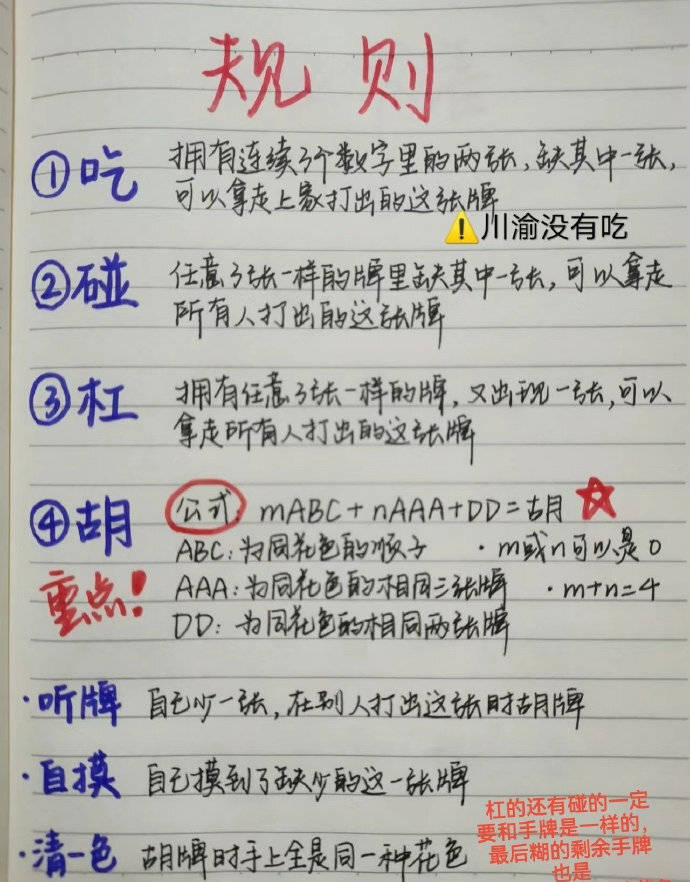 规则
①吃 拥有连续3个数字里的两张,缺其中一张,
可以拿走上家打出的这张牌
川渝没有吃
②碰 任意3张一样的牌里缺其中一张,可以拿走
所有人打出的这张牌
③杠 拥有任意3张一样的牌,又出现一张,可以
拿走所有人打出的这张牌
④胡 公式: mABC+nAAA+DD=胡
ABC:为同花色的顺子 ·m或n可以是0
重点! AAA:为同花色的相同三张牌 ·m+n=4
DD:为同花色的相同两张牌
·听牌 自己少一张,在别人打出这张时胡牌
·自摸 自己摸到了缺少的这一张牌
·清一色 胡牌时手上全是同一种花色
杠的还有碰的一定
要和手牌是一样的,
最后糊的剩余手牌
也是